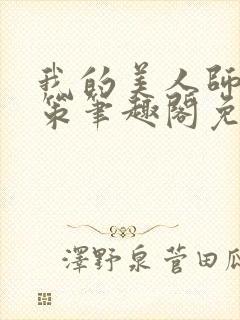 我的美人師
策筆趣閣免
澤野泉菅田瓜